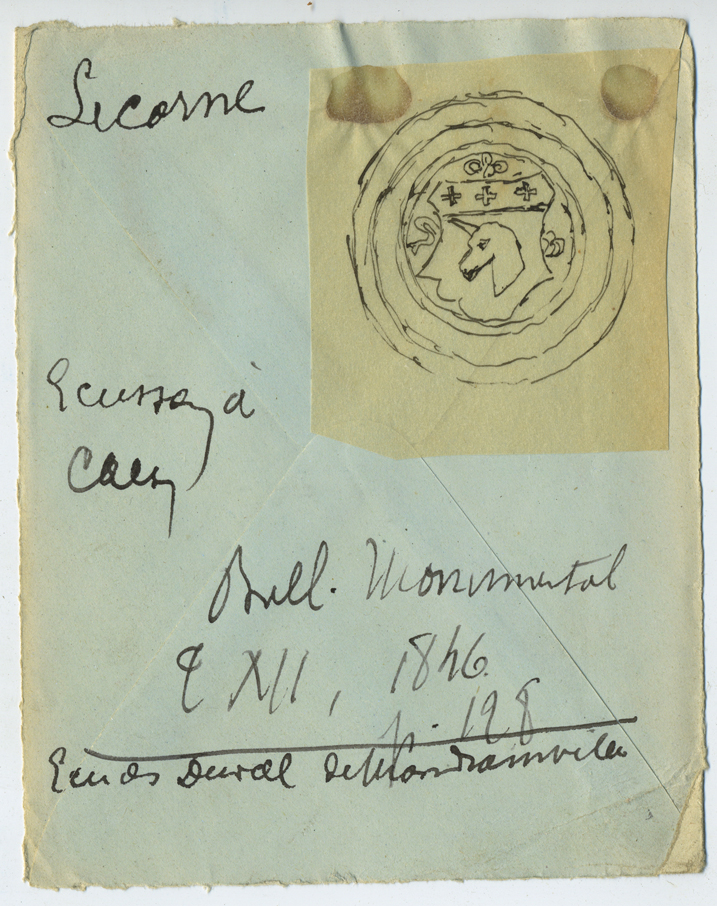 Licorne
Ecusson à
Caen
Bull. Monumental
t XII, 1846.
p. 198
Ecu des Duval de Mondrainville